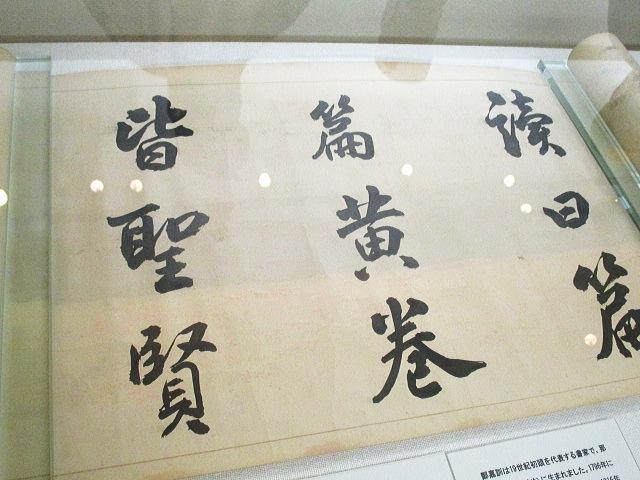 讀日篇
篇黄卷
皆聖賢
鄭嘉訓は19世紀初頭を代表する書家で、那
に生まれました。1796年に